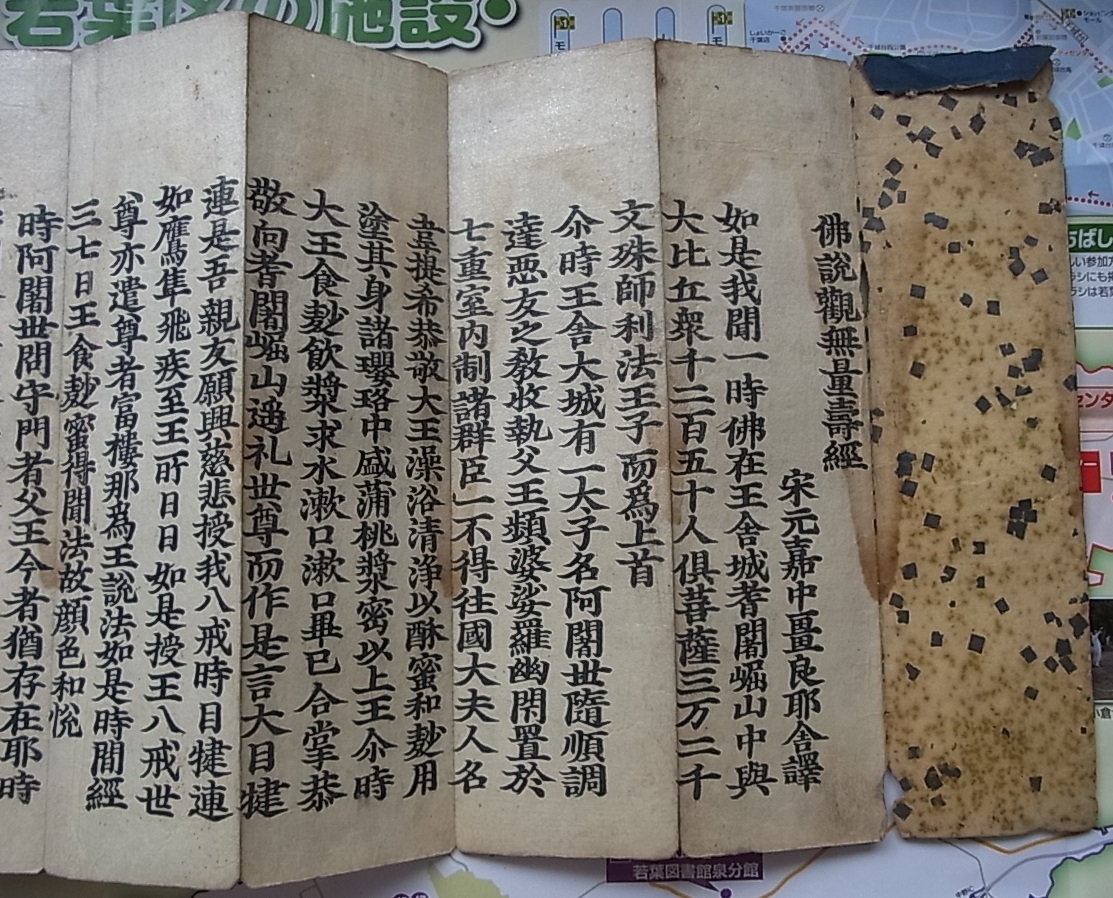 佛説觀無量壽經
宋元嘉中畺良耶舎譯
如是我聞一時佛在王舎城耆闍崛山中與
大比丘衆千二百五十人俱菩薩三万二千
文殊師利法王子而爲上首
尒時王舎大城有一太子名阿闍世隨順調
達惡友之敎收執父王頻婆娑羅幽閇置於
七重室内制諸群臣一不得往國大夫人名
韋提希恭敬大王澡浴清浄以酥蜜和麨用
塗其身諸瓔珞中盛蒲桃漿密以上王尒時
大王食麨飲漿求水漱口漱口畢已合掌恭
敬向耆闍崛山遥礼世尊而作是言大目揵
連是吾親友願興慈悲授我八戒時目揵連
如鷹隼飛疾至王所日日如是授王八戒世
尊亦遣尊者富樓那爲王説法如是時間經
三七日王食麨蜜得聞法故顔色和悦
時阿闍世問守門者父王今者猶存在耶時
若葉区の施設
若葉図書館泉分館